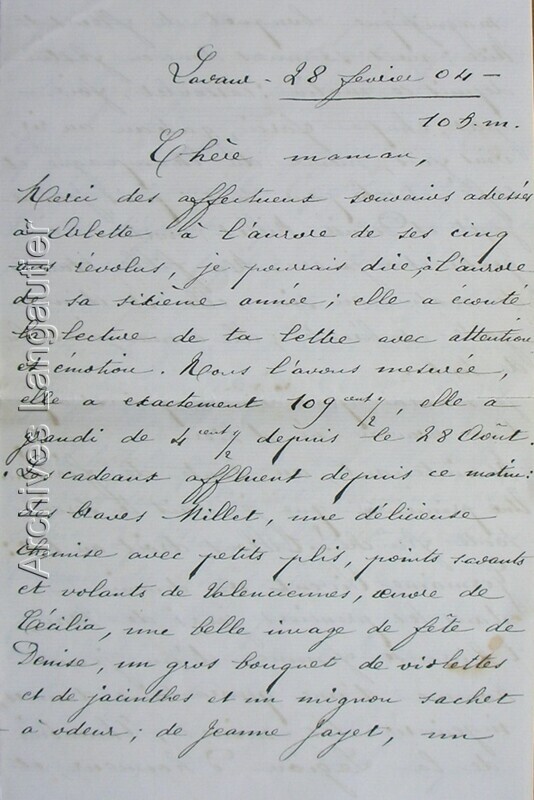 Lavaur - 28 février 04 -
10 h. m.
Chère maman,
Merci des affectueux souvenirs adressés
à Arlette à l'aurore de ses cinq
ans révolus, je pourrais dire, à l'aurore
de sa sixième année ; elle a écouté
la lecture de ta lettre avec attention
et émotion. Nous l'avons mesurée,
elle a exactement 109 cent 1/2, elle a
grandi de 4 cent 1/2 depuis le 28 Août.
cadeaux affluent depuis ce matin :
braves Millet, une délicieuse
chemise avec petits plis, points savants
et volants de Valenciennes, œuvre de
Cécilia, une belle image de fête de
Denise, un gros bouquet de violettes
et de jacinthes et un mignon sachet
à odeur ; de Jeanne Jayet, un
Archives Langautier